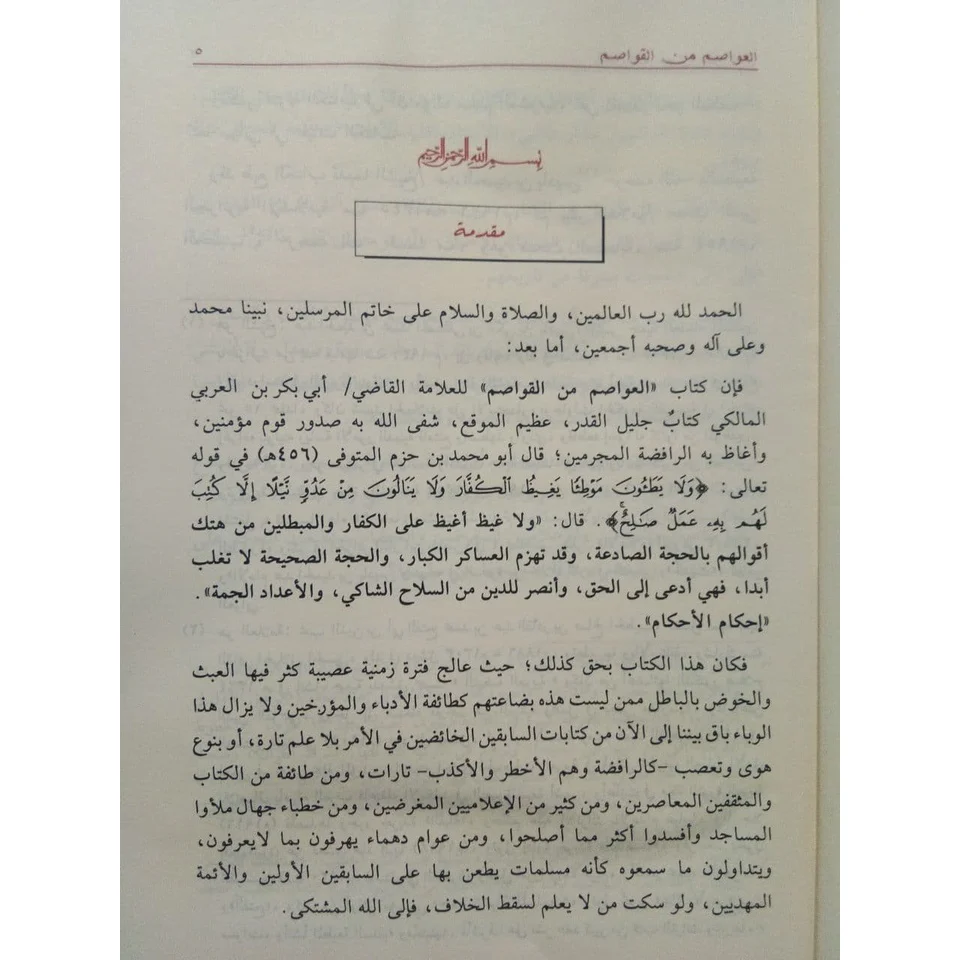 العواصم من القواصم ٥
بسم الله الرحمن الرحيم
مقدمة
الحمد لله رب العالمين، والصلاة والسلام على خاتم المرسلين، نبينا محمد
وعلى آله وصحبه أجمعين، أما بعد:
فإن كتاب «العواصم من القواصم» للعلامة القاضي/ أبي بكر بن العربي
المالكي كتابٌ جليل القدر، عظيم الموقع، شفى الله به صدور قوم مؤمنين،
وأغاظ به الرافضة المجرمين؛ قال أبو محمد بن حزم المتوفى (٤٥٦هـ) في قوله
تعالى: ﴿وَلَا يَطَـُٔونَ مَوْطِئًا يَغِيظُ الْكُفَّارَ وَلَا يَنَالُونَ مِنْ عَدُوٍّ نَّيْلًا إِلَّا كُتِبَ
لَهُم بِهِۦ عَمَلٌ صَـٰلِحٌۚ﴾. قال: «ولا غيظ أغيظ على الكفار والمبطلين من هتك
أقوالهم بالحجة الصادعة، وقد تهزم العساكر الكبار، والحجة الصحيحة لا تغلب
أبدا، فهي أدعى إلى الحق، وأنصر للدين من السلاح الشاكي، والأعداد الجمة».
«إحكام الأحكام».
فكان هذا الكتاب بحق كذلك؛ حيث عالج فترة زمنية عصيبة كثر فيها العبث
والخوض بالباطل ممن ليست هذه بضاعتهم كطائفة الأدباء والمؤرخين ولا يزال هذا
الوباء باق بيننا إلى الآن من كتابات السابقين الخائضين في الأمر بلا علم تارة، أو بنوع
هوى وتعصب -كالرافضة وهم الأخطر والأكذب- تارات، ومن طائفة من الكتاب
والمثقفين المعاصرين، ومن كثير من الإعلاميين المغرضين، ومن خطباء جهال ملأوا
المساجد وأفسدوا أكثر مما أصلحوا، ومن عوام دهماء يهرفون بما لايعرفون،
ويتداولون ما سمعوه كأنه مسلمات يطعن بها على السابقين الأولين والأئمة
المهديين، ولو سكت من لا يعلم لسقط الخلاف، فإلى الله المشتكى.